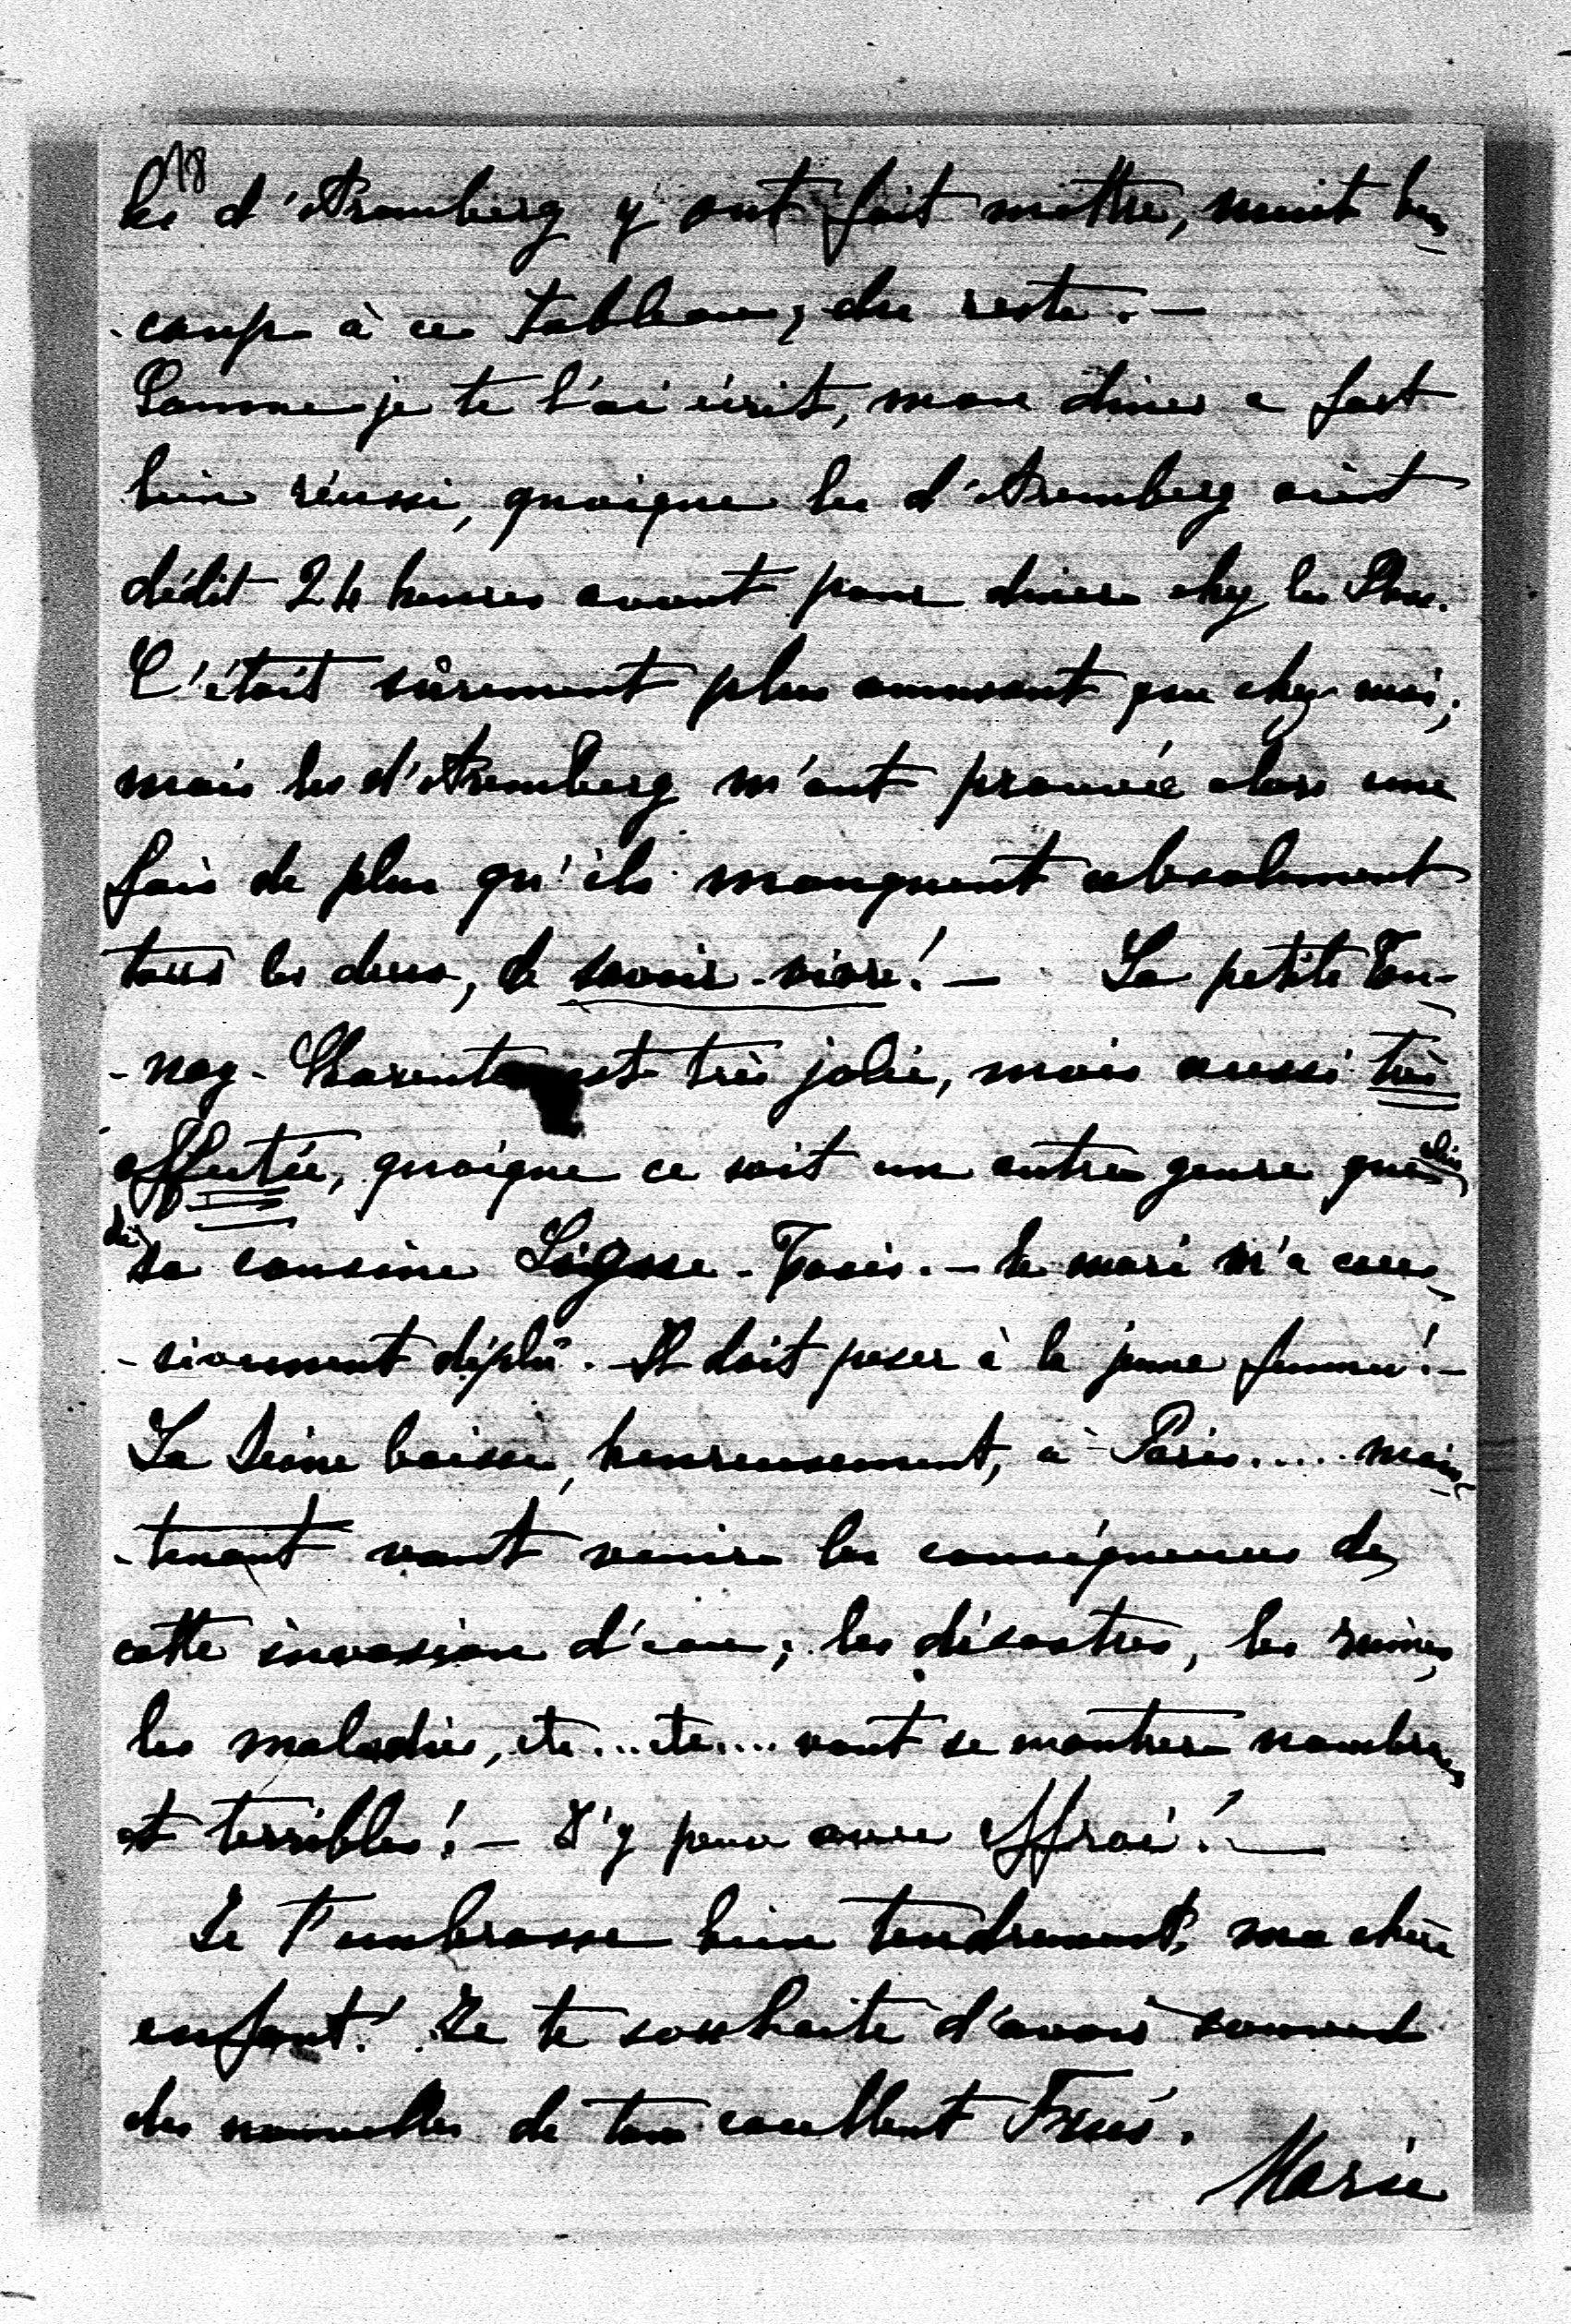 18
les d'Aremberg y ont fait mettre, nuit beau-
-coup à ce tableau, du reste. -
Comme je te l'ai écrit, mon diner a fort
bien réussi, quoique les d'Aremberg aient
dédit 24 heures avant pour diner chez les
C'était sûrement plus amusant que chez moi;
mais les d'Aremberg m'ont prouvé alors une
fois de plus qu'ils manquent absolument
tous les deux, de savoir-vivre! - La petite Ton-
-nay-Charente est très jolie, mais aussi très
affectée, quoique ce soit un autre genre que celui
de sa cousine - le mari m'a exces-
-sivement déplû. Il doit peser à la jeune femme! -
La Seine baisse, heureusement, à Paris..... main-
-tenant vont venir les conséquences de
cette invasion d'eau; les désastres, les ruines,
les maladies, etc...etc.... vont se montrer nombreux
et terribles! - J'y pense avec effroi! -
Je t'embrasse bien tendrement, ma chère
enfant! Je te souhaite d'avoir souvent
des nouvelles de ton excellent
Marie